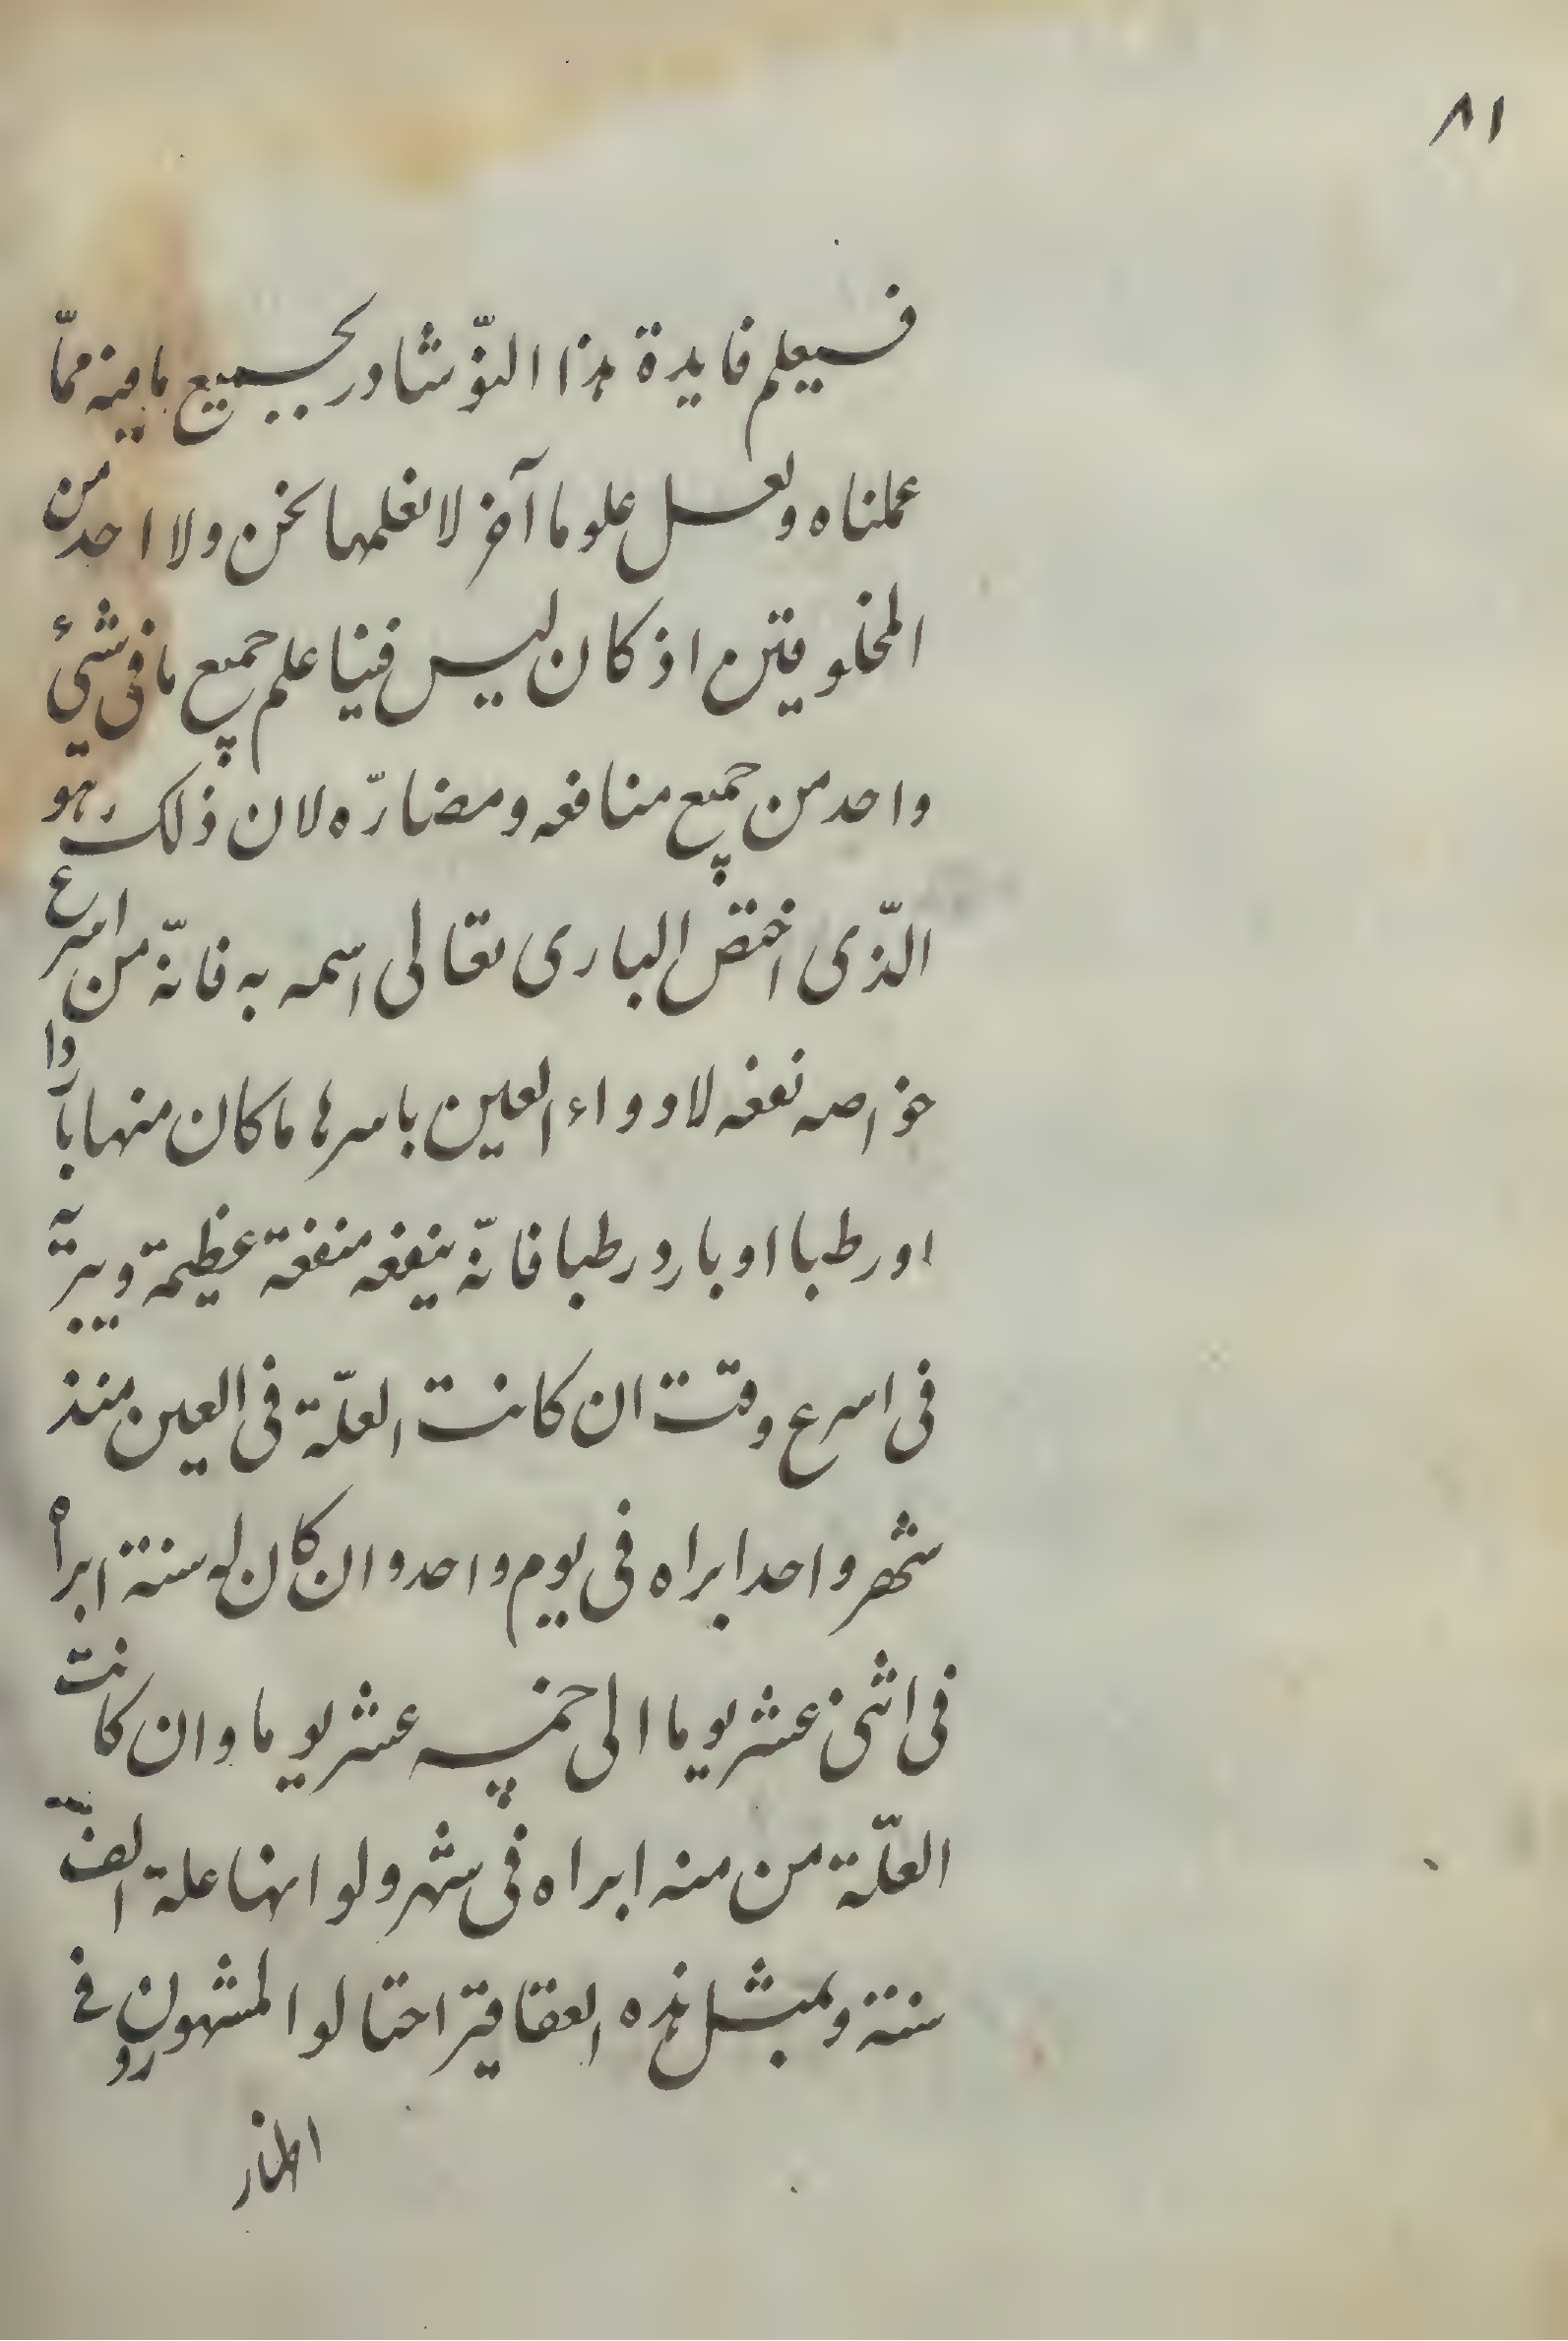 ٨١
فسيعلم فايدة هذا النّوشادر بجميع ما فيه ممّا
عملناه ولعل علوما آخر لا نعلمها نحن ولا احد من
المخلوقين اذ كان ليس فينا علم جميع ما فى شيئ
واحد من جميع منافعه ومضارّه لان ذلك هو
الّذى اختص البارى تعالى اسمه به فانّه من اسرع
خواصه نفعه لادواء العين باسرها ما كان منها باردا
او رطبا او بارد رطبا فانّه ينفعه منفعة عظيمة ويبرئه
فى اسرع وقت ان كانت العلّة فى العين منذ
شهر واحد ابراه فى يوم واحد وان كان له سنة ابراه
فى اثنى عشر يوما الى خمسه عشر يوما وان كانت
العلّة من منه ابراه فى شهر ولو انها علة الف
سنة وبمثل هذه العقاقير احتالوا المشهورون فى
اظهار